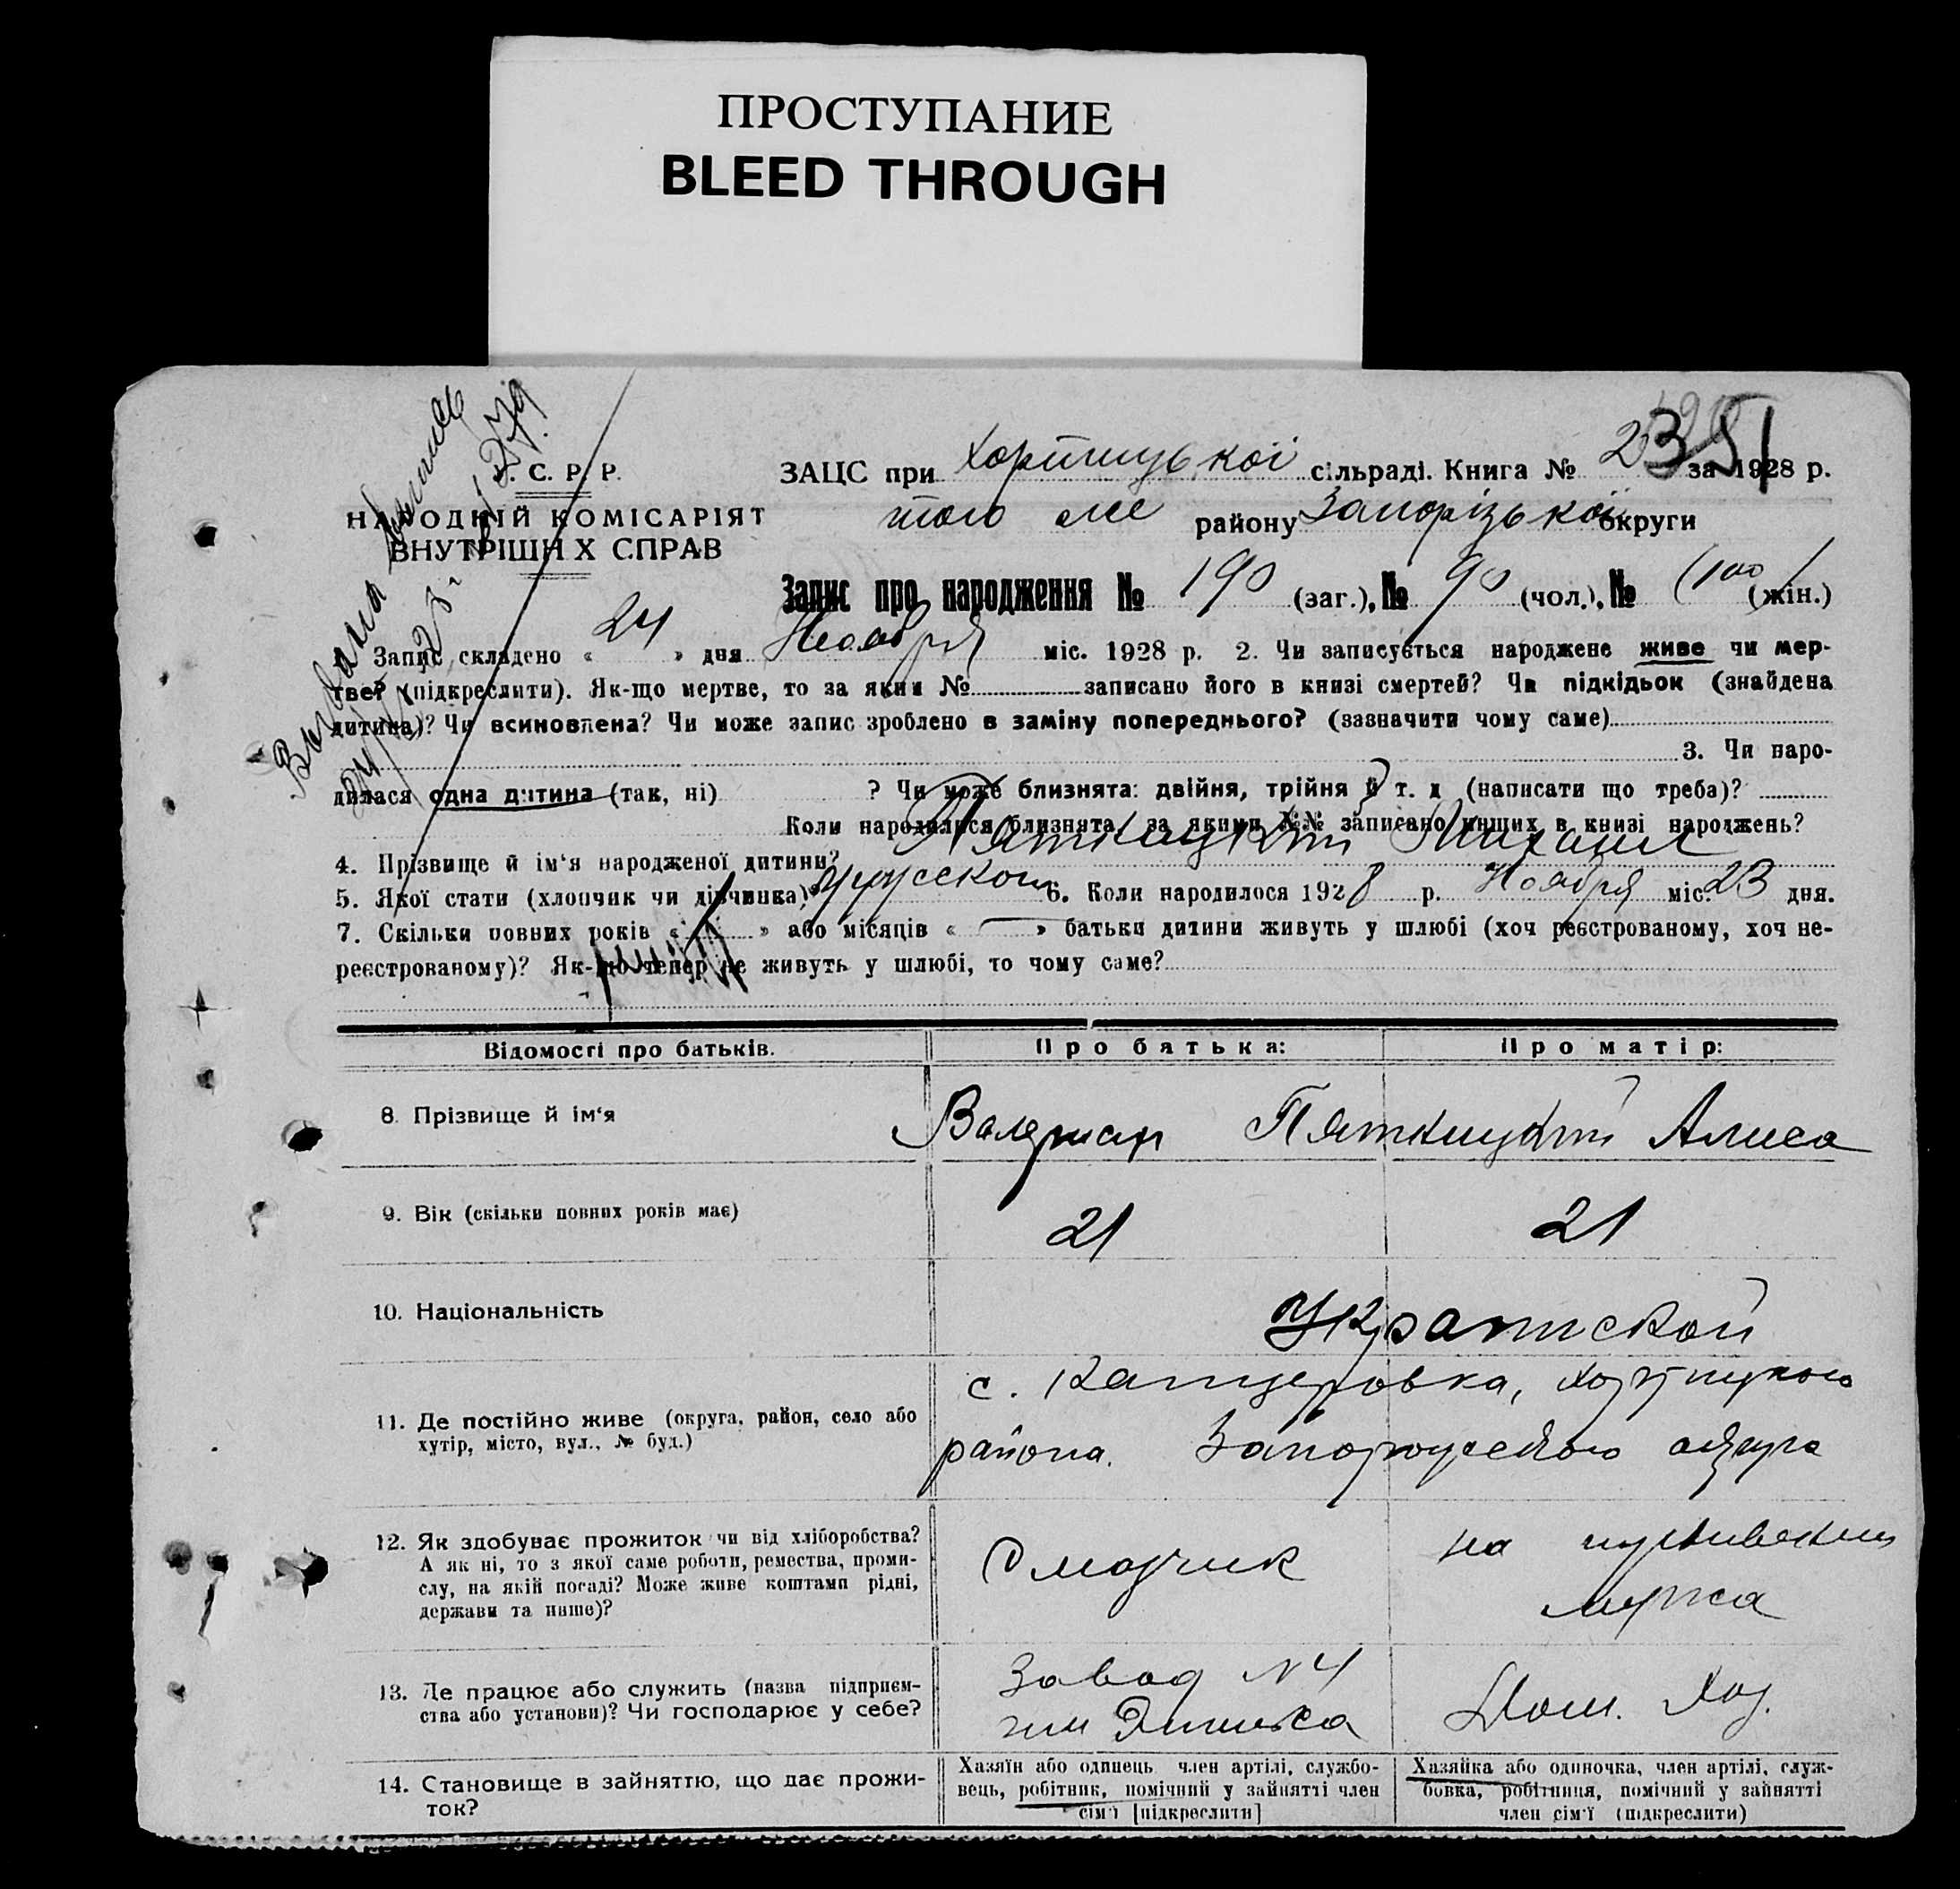 ПРОСТУПАНИЕ
BLEED THROUGH
Выдана выпись
У. С. Р. Р.
НАРОДНІЙ КОМІСАРІЯТ
ВНУТРІШНІХ СПРАВ
ЗАЦС при Хортицької сільраді. Книга № 2 за 1928 р.
351
того же району Запорізької округи
Запис про народження № 190 (заг.), № 90 (чол.), № (100) (жін.)
Запис складено « 24 » дня Ноября міс. 1928 р. 2. Чи записується народжене живе чи мер-
тве? (підкреслити). Як-що мертве, то за яким № записано його в книзі смертей? Чи підкідьок (знайдена
дитина)? Чи всиновлена? Чи може запис зроблено в заміну попереднього? (зазначити чому саме)
3. Чи наро-
дилася одна дитина (так, ні) ? Чи може близнята: двійня, трійня й т. д (написати що треба)?
Коли народилися близнята, за якими №№ записано инших в книзі народжень?
4. Прізвище й ім‘я народженої дитини? Пятницкий Михаил
5. Якої стати (хлопчик чи дівчинка)? 6. Коли народилося 1928 р. Ноября міс. 23 дня.
7. Скільки повних років « » або місяців « » батьки дитини живуть у шлюбі (хоч реєстрованому, хоч не-
реєстрованому)? Як-що тепер не живуть у шлюбі, то чому саме?
Відомості про батьків. Про батька: Про матір:
8. Прізвище й ім‘я Пятницкий Алиса
9. Вік (скільки повних років має) 21 21
10. Національність
11. Де постійно живе (округа, район, село або
хутір, місто, вул., № буд.)
с. Канцеровка, Хортицкого
района. Запорожского округа
12. Як здобуває прожиток чи від хліборобства?
А як ні, то з якої саме роботи, ремества, проми-
слу, на якій посаді? Може живе коштами рідні,
держави та инше)?
на иждивении
мужа
13. Де працює або служить (назва підприєм-
ства або установи)? Чи господарює у себе?
Завод №4
им Энгельса
Дом. Хоз.
14. Становище в зайняттю, що дає прожи-
ток?
Хазяїн або одинець член артілі, службо-
вець, робітник, помічний у зайнятті член
сім‘ї [підкреслити]
Хазяйка або одиночка, член артілі, служ-
бовка, робітниця, помічний у зайнятті
член сім‘ї (підкреслити)